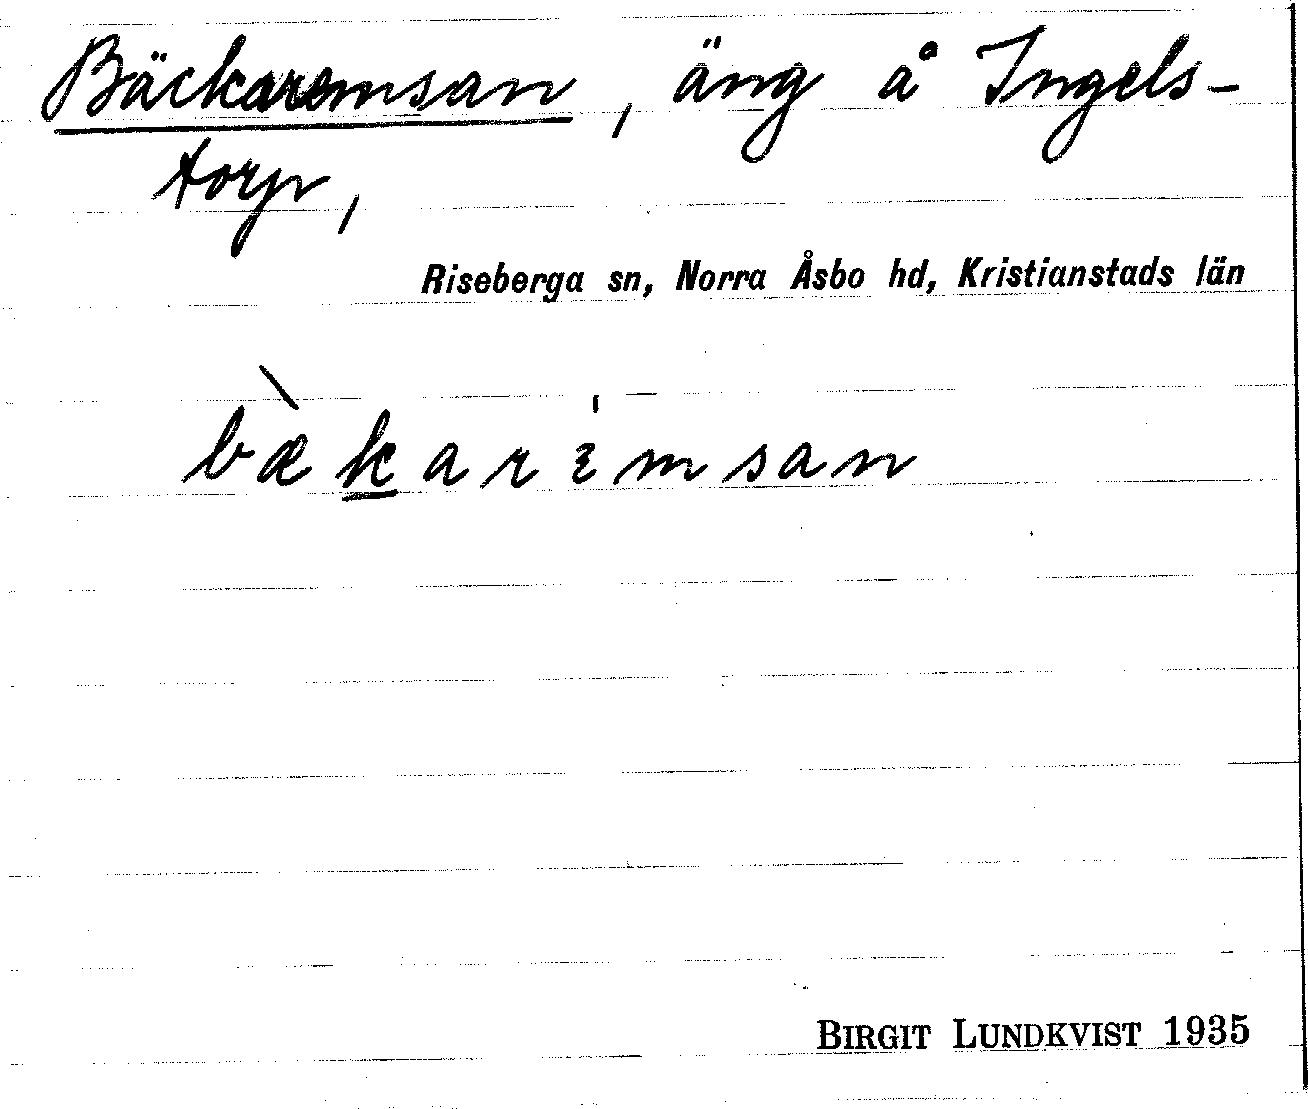 Bäckaremsan, äng å Ingels-
torp,
Riseberga sn, Norra Åsbo hd, Kristianstads län
bæ̀karɛ̍msan
BIRGIT LUNDKVIST 1935